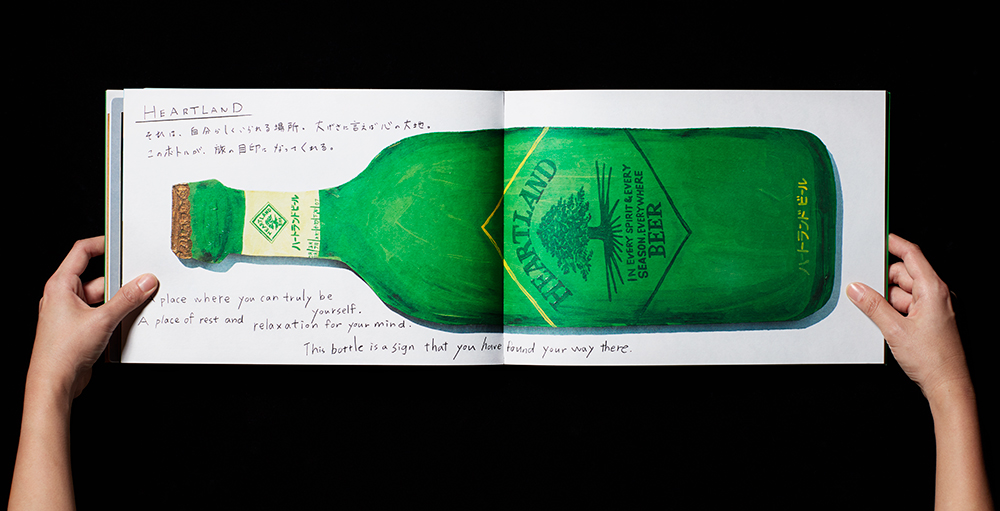 HEARTLAND
それは、自分らしくいられる場所。大げさに言えば心の大地。
このボトルが、旅の目印になってくれる。
HEARTLAND
ハートランドビール
HEARTLAND
IN EVERY SPIRIT & EVERY
SEASON, EVERYWHERE
BEER
ハートランドビール
place where you can truly be
yourself.
A place of rest and relaxation for your mind.
This bottle is a sign that you have found your way there.